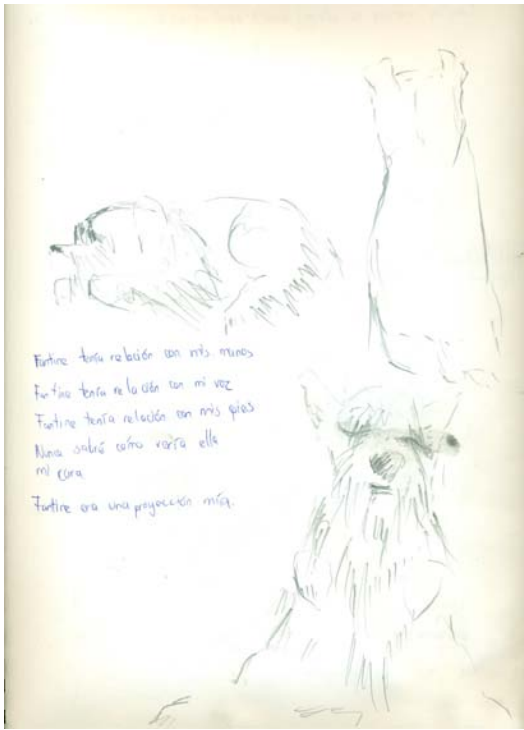 Fantine tenía relación con mis manos
Fantine tenía relación con mi voz
Fantine tenía relación con mis pies
Nunca sabré cómo vería ella
mi cara
Fantine era una proyección mía.